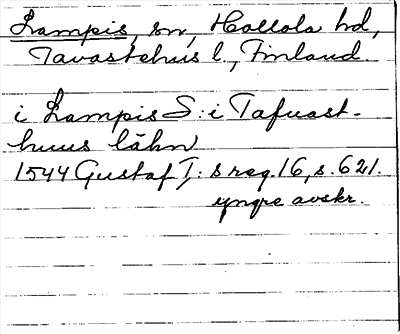 Lampis, sn, Hollola hd,
Tavastehus l., Finland.
i Lampis S: i Tafuast-
huus lähn
1544 Gustaf I: s reg. 16, s. 621.
yngre avskr.